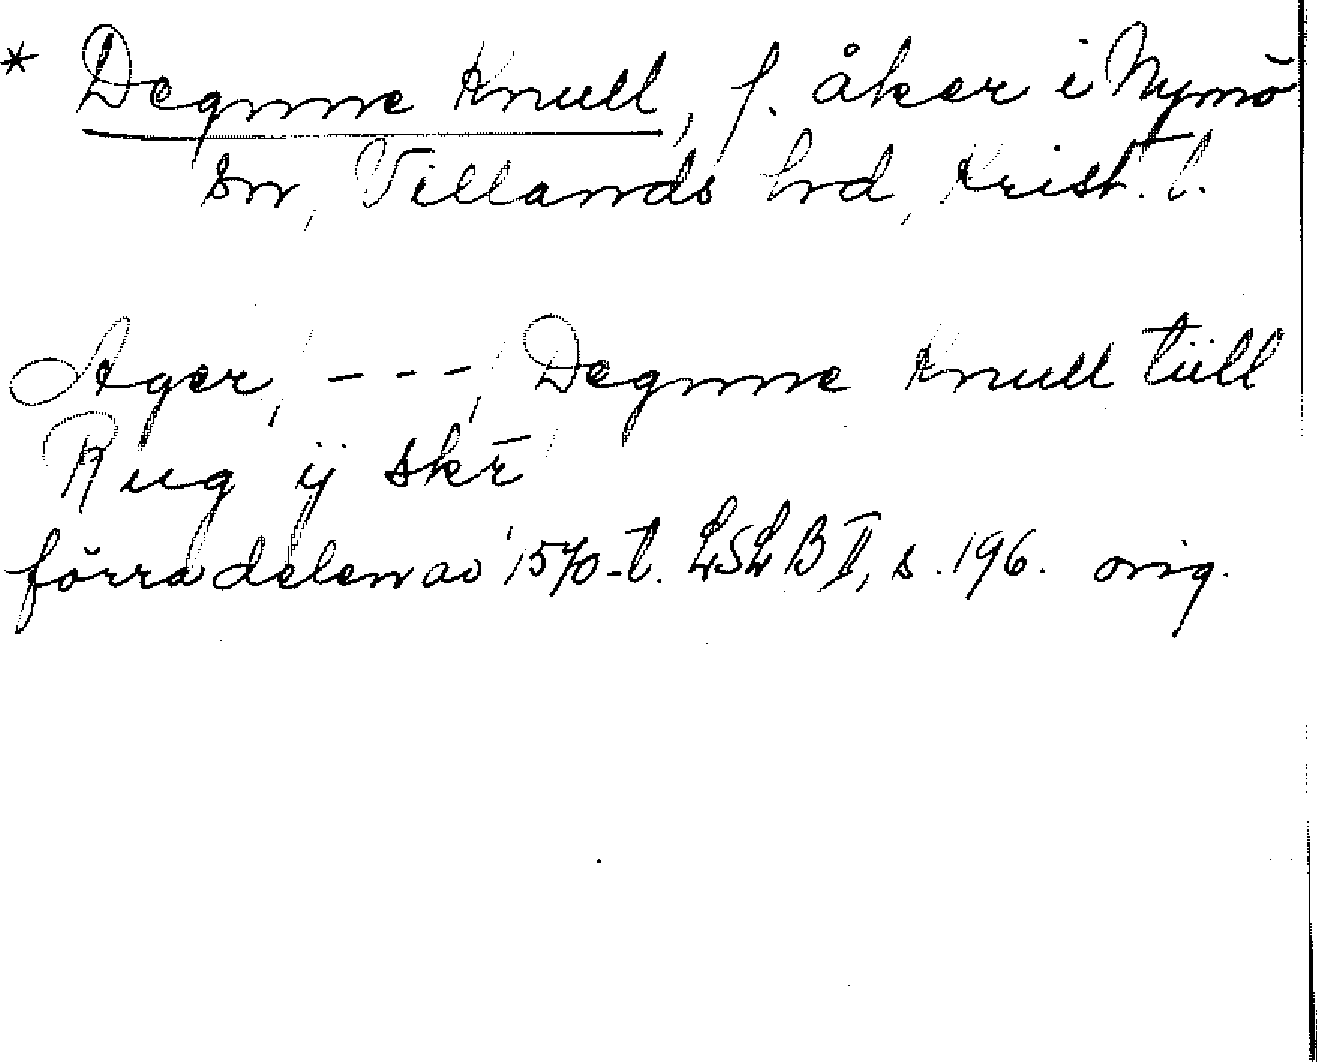 * Degnne Knull, f. åker i Nymö
sn, Villands hd, Krist. l.
Ager, - - -, Degnne Knull tüll
Rug ij skr̄
förra delen av 1570-t. LSLB II, s. 196. orig.